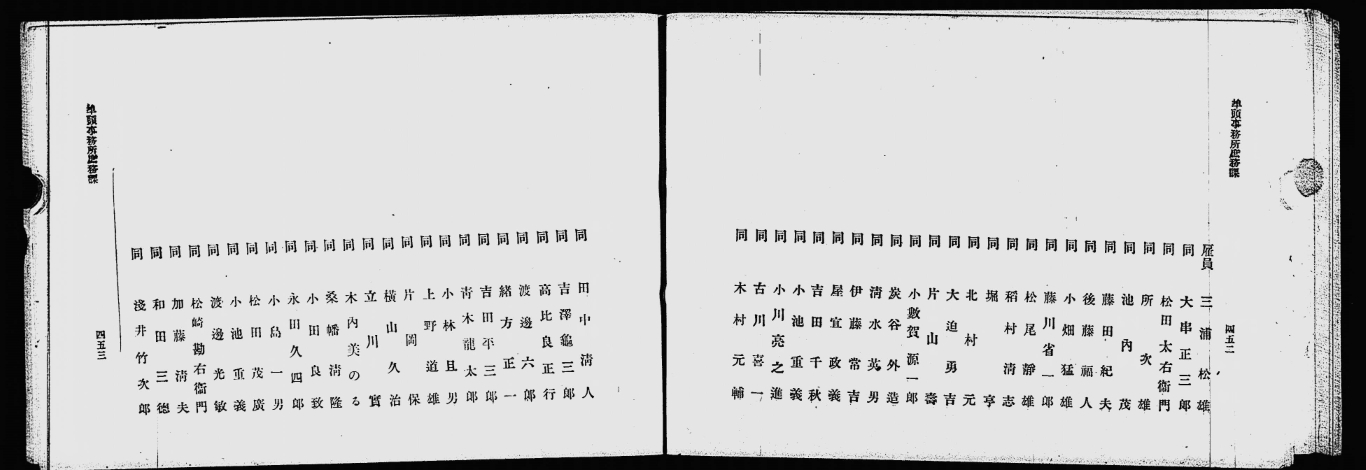 埠頭事務所庶務課
四五二
雇員 三浦松雄
同 大串正三郎
同 松田太右衞門
同 所次雄
同 池內茂
同 藤田紀夫
同 後藤福人
同 小畑猛雄
同 藤川省一郎
同 松尾靜雄
同 稻村淸志
同 堀亨
同 北村元
同 大迫勇吉
同 片山壽
同 小敷賀源一郎
同 炭谷外造
同 淸水英男
同 伊藤常吉
同 屋宜政義
同 吉田千秋
同 小池重義
同 小川亮之進
同 古川喜一
同 木村元輔
同 田中淸人
同 吉澤龜三郎
同 高比良正行
同 渡邊六郎
同 緖方正一
同 吉田平三郎
同 靑木龍太郎
同 小林且男
同 上野道雄
同 片岡保
同 橫山久治
同 立川實
同 木內美のる
同 桑幡淸隆
同 小田良致
同 永田久四郎
同 小島一男
同 松田茂廣
同 小池重義
同 渡邊光敏
同 松崎勘右衞門
同 加藤淸夫
同 和田三德
同 淺井竹次郎
埠頭事務所庶務課
四五三